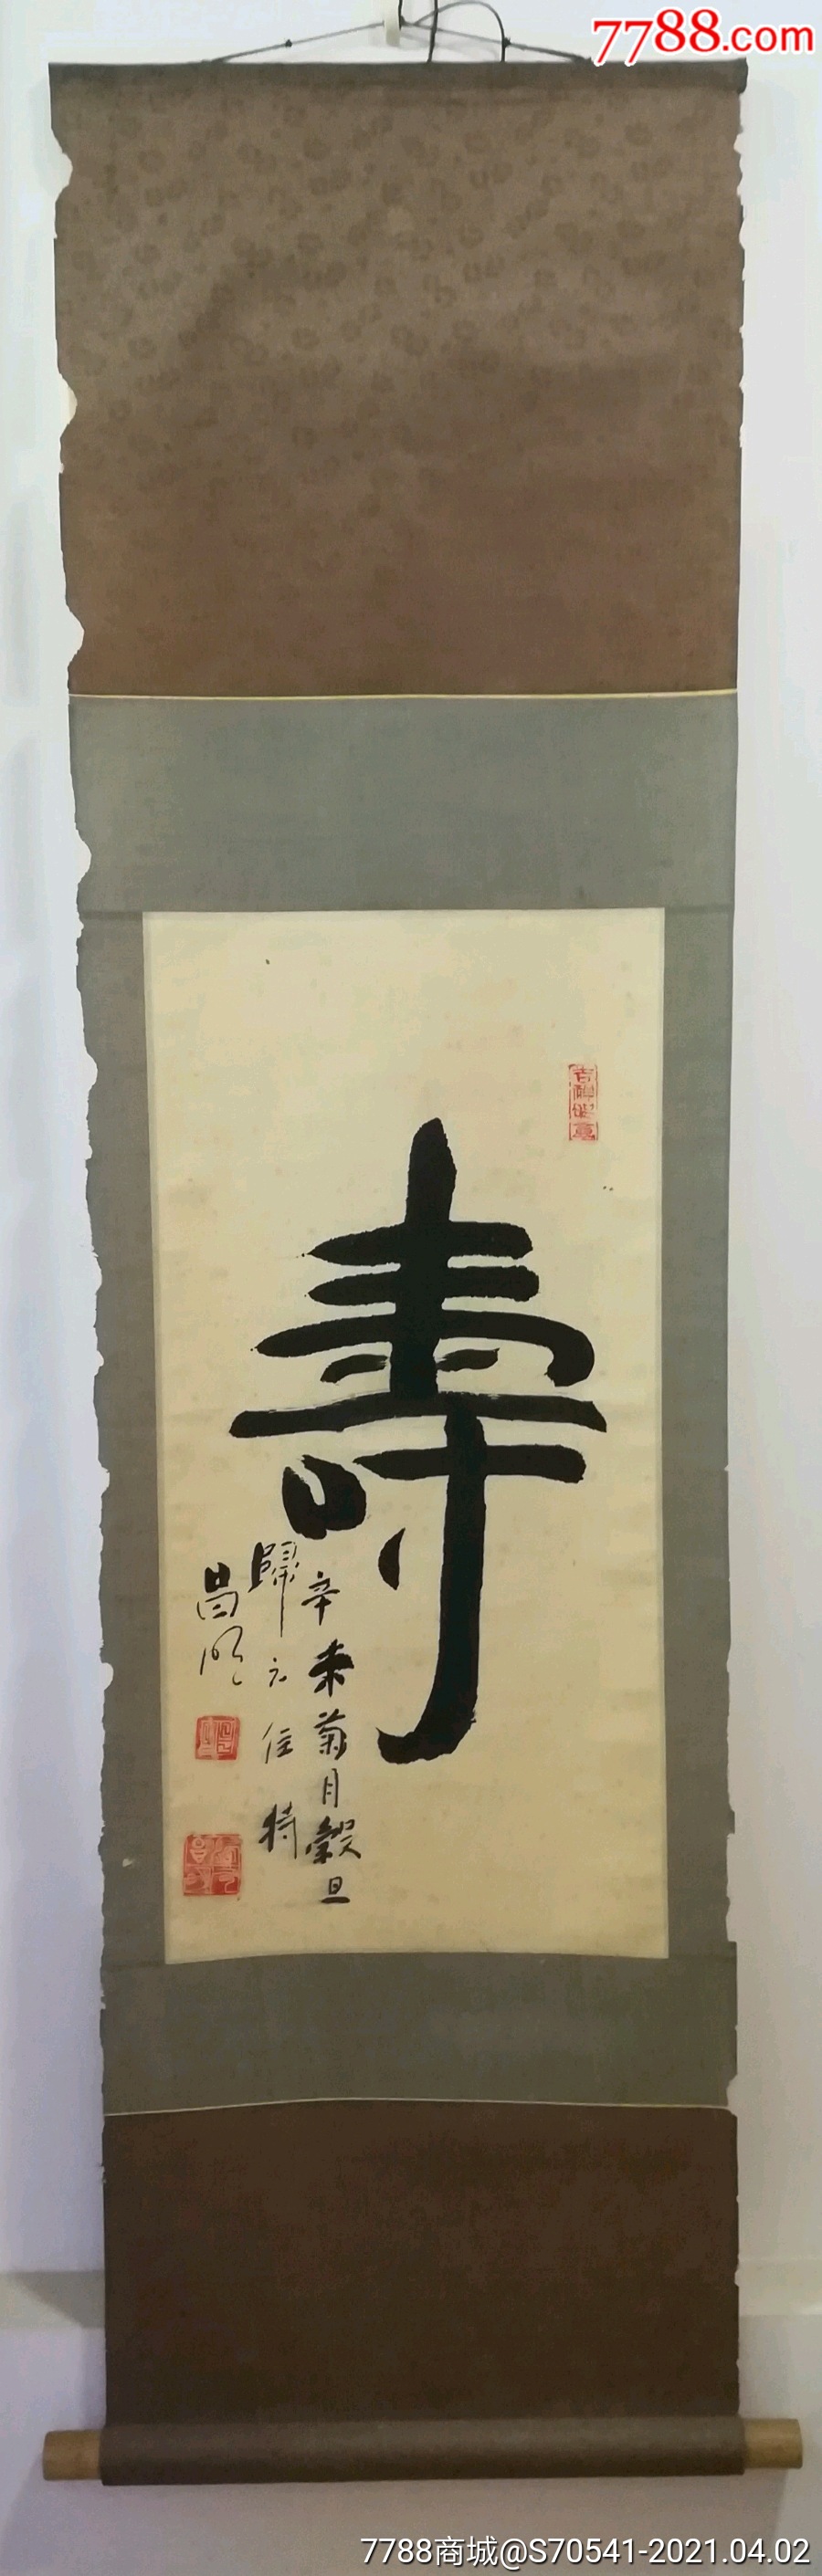 7788.com
吉祥如意
壽
辛未菊月穀旦
歸元住持
昌明
7788商城@S70541-2021.04.02